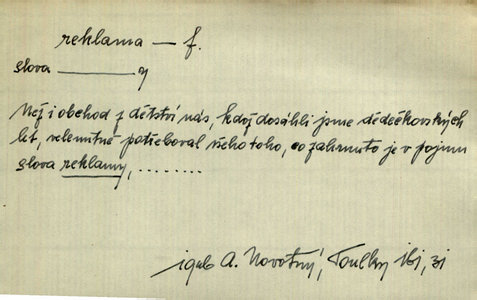 reklama — f.
slova ———— y
Než i obchod z dětství nás, když dosáhli jsme dědečkovských
let, velemírně potřeboval všeho toho, co zahrnuto je v pojmu
slova reklamy, ........
A. Novotný, Toulky